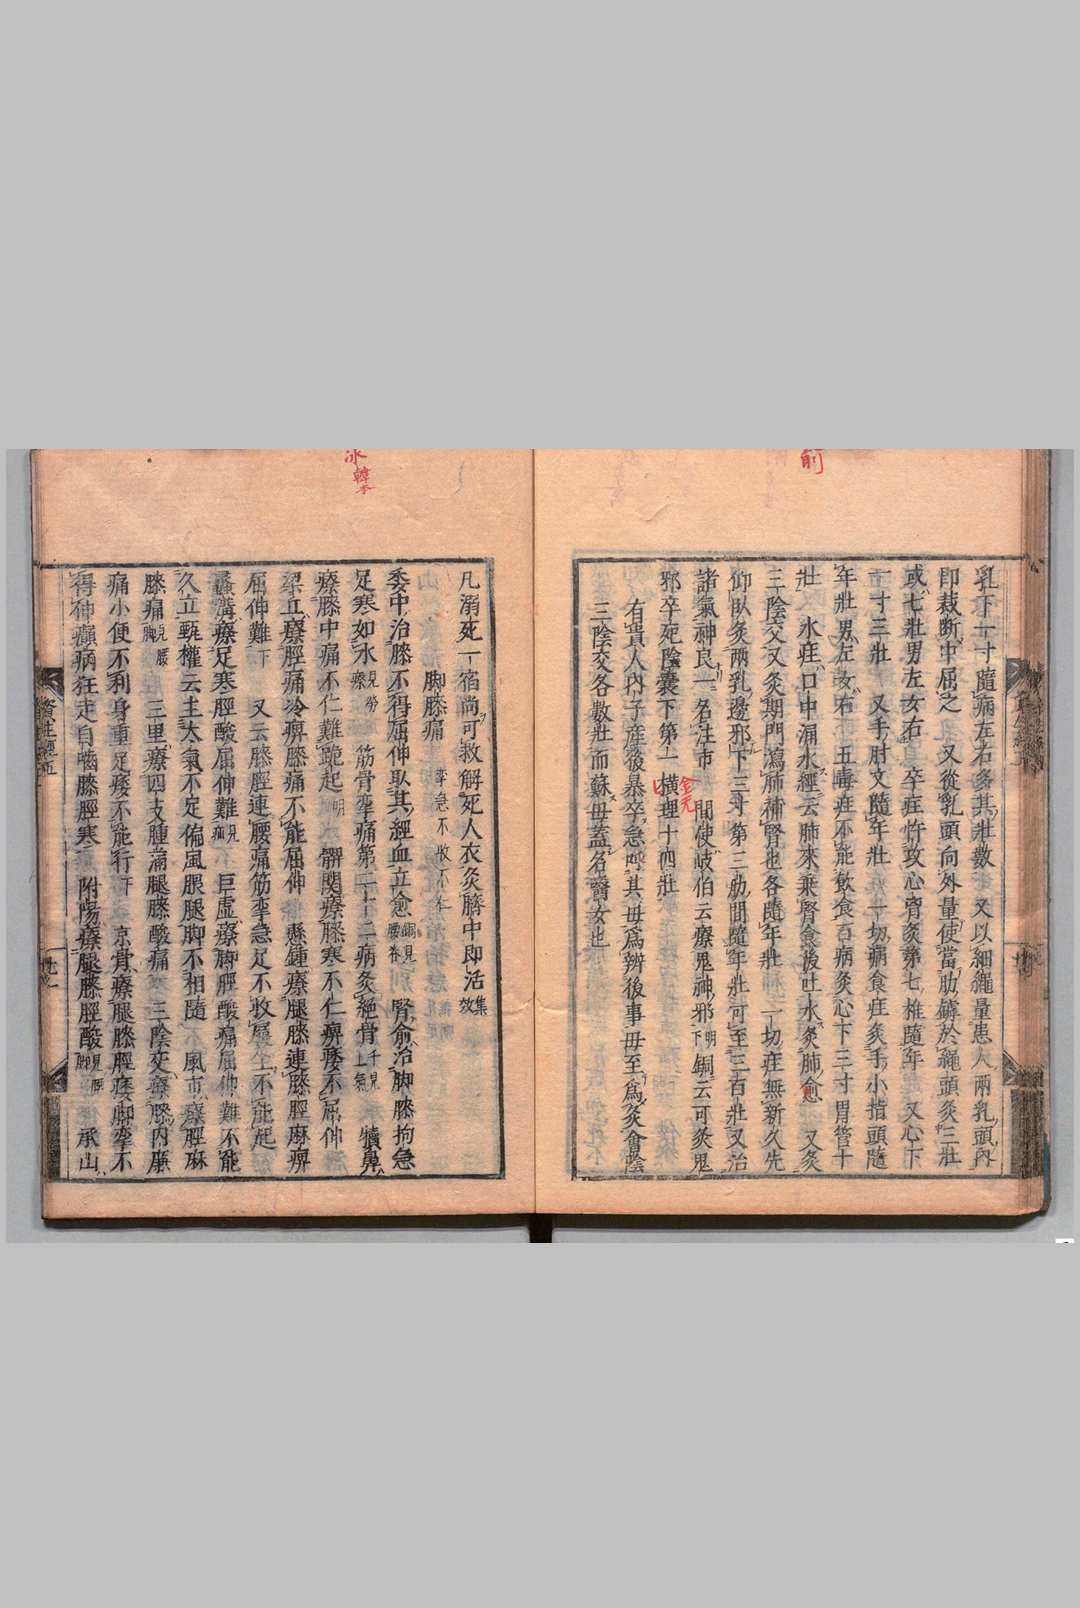 俞
乳下一寸隨病左右多其壯數 又以細繩量患人兩乳頭內
即裁斷中屈之 又從乳頭向外量使當肋罅於繩頭灸三壯
或七壯男左女右 卒疰忤攻心胷灸第七椎隨年 又心下
一寸三壯 又手肘文隨年壯 一切病食疰灸手小指頭隨
年壯男左女右 五毒疰不能飲食百病灸心下三寸胃管十
壯 水疰口中涌水經云肺來乘腎食後吐水灸肺愈 又灸
三陰交又灸期門瀉肺補腎也各隨年壯 一切疰無新久先
仰臥灸兩乳邊邪下三寸第三肋間隨年壯可至三百壯又治
諸氣神良一名注市 間使岐伯云療鬼神邪明下銅云可灸鬼
邪卒死陰囊下第一橫理十四壯
有貴人內子產後暴卒急呼其母為辦後事母至為灸會陰
三陰交各數壯而蘇母蓋名醫女也
凡溺死一宿尚可救解死人衣灸臍中即活集效
脚膝痛
委中治膝不得屈伸取其經血立愈銅見腰脊 腎俞治脚膝拘急
足寒如冰見勞瘵 筋骨攣痛第二十一病灸絕骨千見上氣 犢鼻
療膝中痛不仁難跪起明 髀關療膝寒不仁痹痿不屈伸
梁丘療脛痛冷痹膝痛不能屈伸 懸鍾療腿膝連膝脛麻痹
屈伸難下 又云膝脛連腰痛筋攣急足不收履坐不能起
蠡溝療足寒脛酸屈伸難見疝 巨虛療脚脛酸痛屈伸難不能
久立甄權云主大氣不足偏風腲腿脚不相隨 風市療脛麻
膝痛見腰脚 三里療四支腫滿腿膝酸痛 三陰交療膝內廉
痛小便不利身重足痿不能行下 京骨療腿膝脛痿脚攣不
得伸癲病狂走自嚙膝脛寒 附陽療腿膝脛酸見腰脚 承山